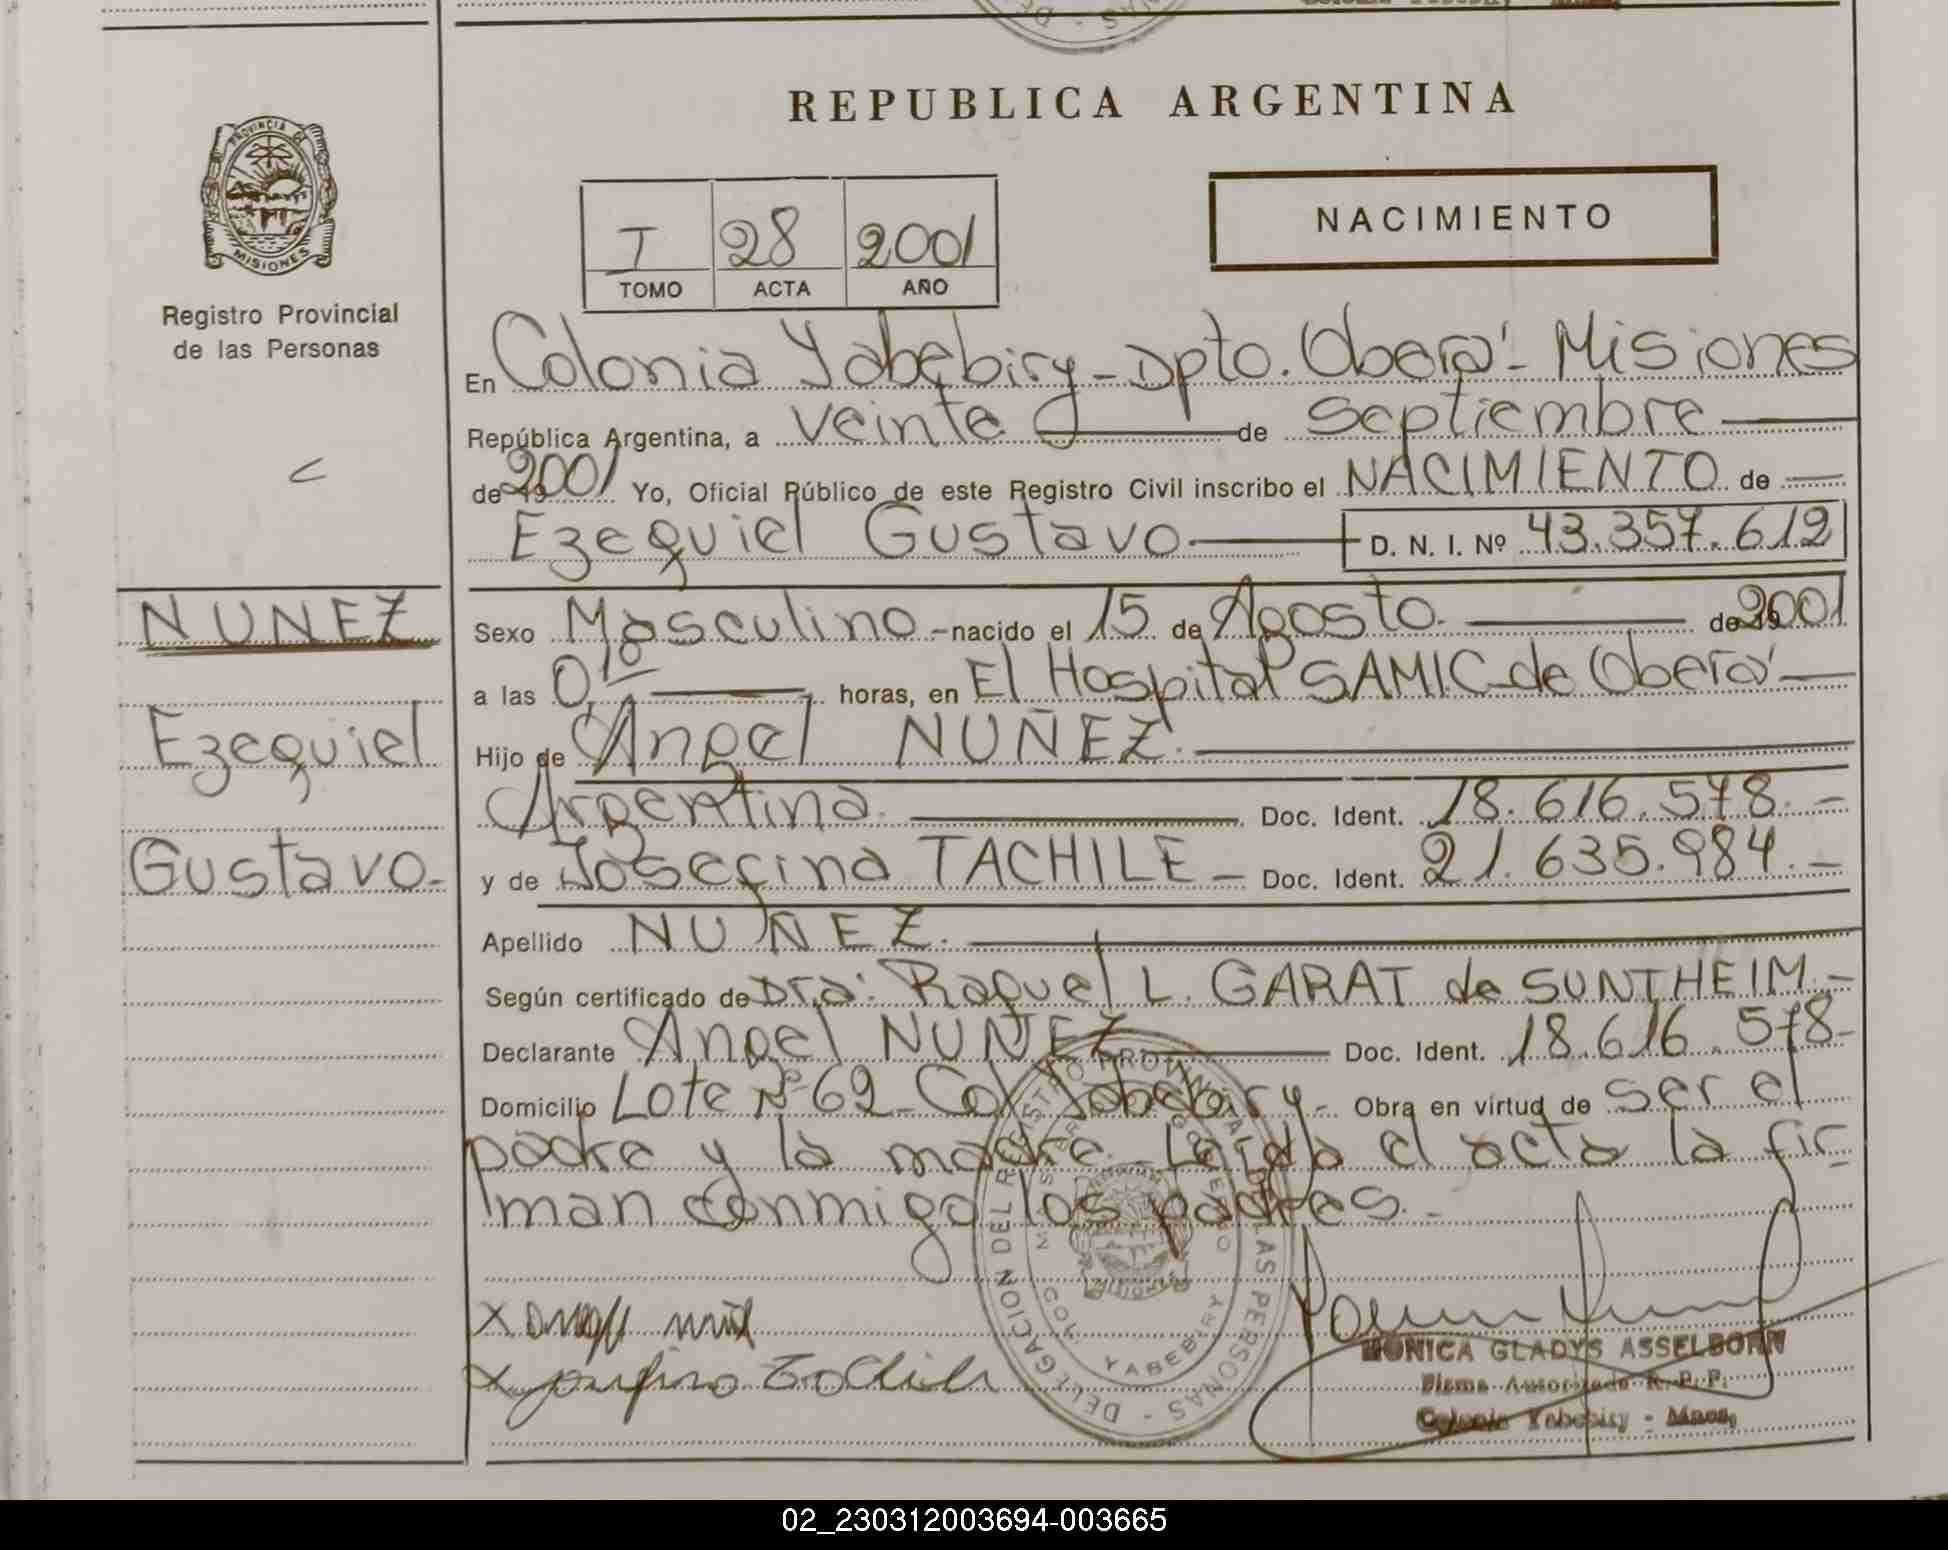 REPUBLICA ARGENTINA
PROVINCIA DE
MISIONES
Registro Provincial
de las Personas
NACIMIENTO
I 28 2001
TOMO ACTA AÑO
En Colonia Yabebiry - Dpto. Oberá - Misiones
República Argentina, a veinte de septiembre
de 2001 Yo, Oficial Público de este Registro Civil inscribo el NACIMIENTO de
Ezequiel Gustavo D. N. I. Nº 43.357.612
NUNEZ
Ezequiel
Gustavo.-
Sexo Masculino - nacido el 15 de Agosto. de 2001
a las 0,10 horas, en El Hospital SAMIC de Oberá
Hijo de Angel NUÑEZ.
Argentina. Doc. Ident. 18.616.578.-
y de Josefina TACHILE - Doc. Ident. 21.635.984.-
Apellido NUÑEZ.
Según certificado de Dra. Raquel L. GARAT de SUNTHEIM.-
Declarante Angel NUÑEZ Doc. Ident. 18.616.578-
Domicilio Lote Nº 62 - Col. Yabebiry.- Obra en virtud de ser el
padre y la madre. Leída el acta la fir-
man conmigo los padres.-
DELEGACION DEL REGISTRO PROVINCIAL DE LAS PERSONAS -
COL. YABEBIRY
MISIONES
MONICA GLADYS ASSELBORN
Firma Autorizada R. P. P.
Colonia Yabebiry - Mnes.
02_230312003694-003665